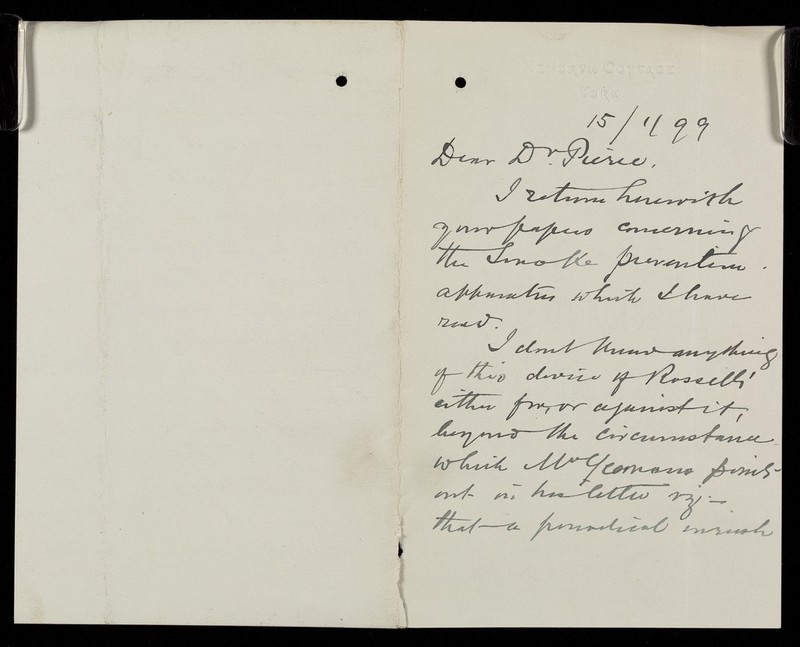 COTTAGE
YORK
15/1/99
Dear Dr. Pierce.
I return herewith
your papers concerning
the Smoke prevention
apparatus which I have
read.
I dont know anything
of this device of Rossell's
either for, or against it,
beyond the circumstance
which Mr Yeomans points
out in his letter viz:—
that a periodical inrush